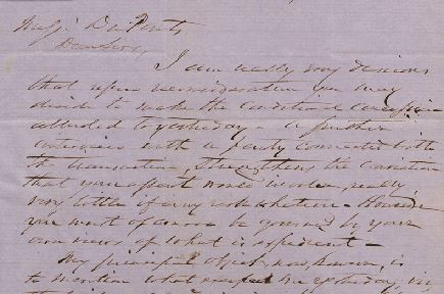 Dear Sir,
I am really very desirous
that upon reconsideration you may
decide to make the conditional concession
alluded to yesterday - a further
with a party connected with
the transaction, strengthens the conviction
that your effort would involve, really
very little if any risk whatever - However
you must of course be governed by your
own views of what is expedient -
My principal object, now, however, is
to mention what escaped me yesterday, viz